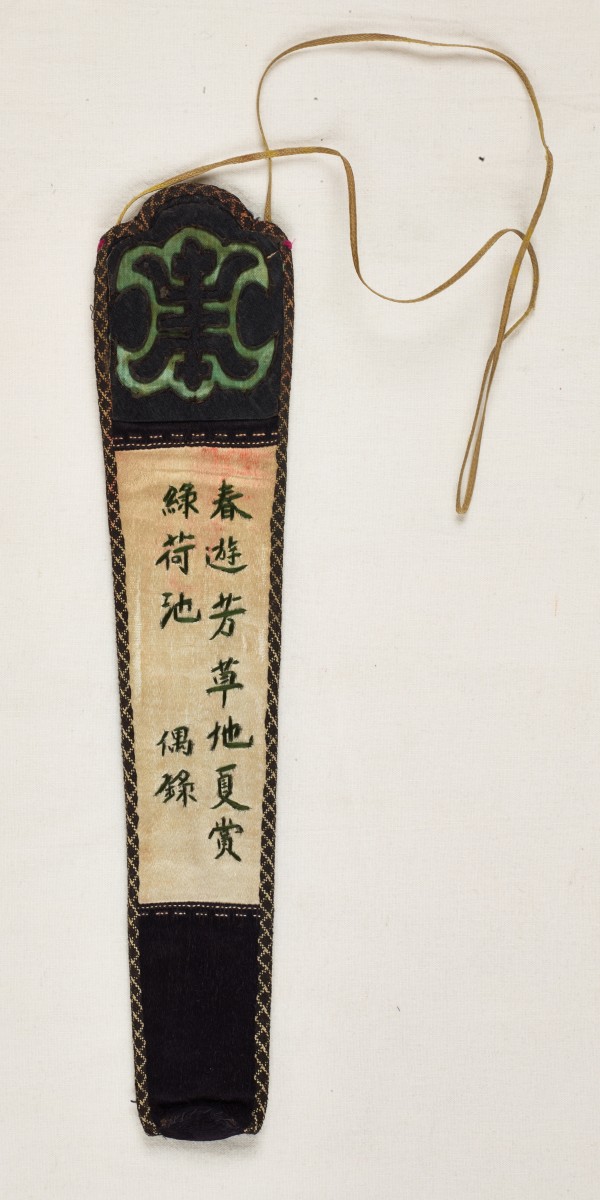 春遊芳草地夏賞
綠荷池 偶錄